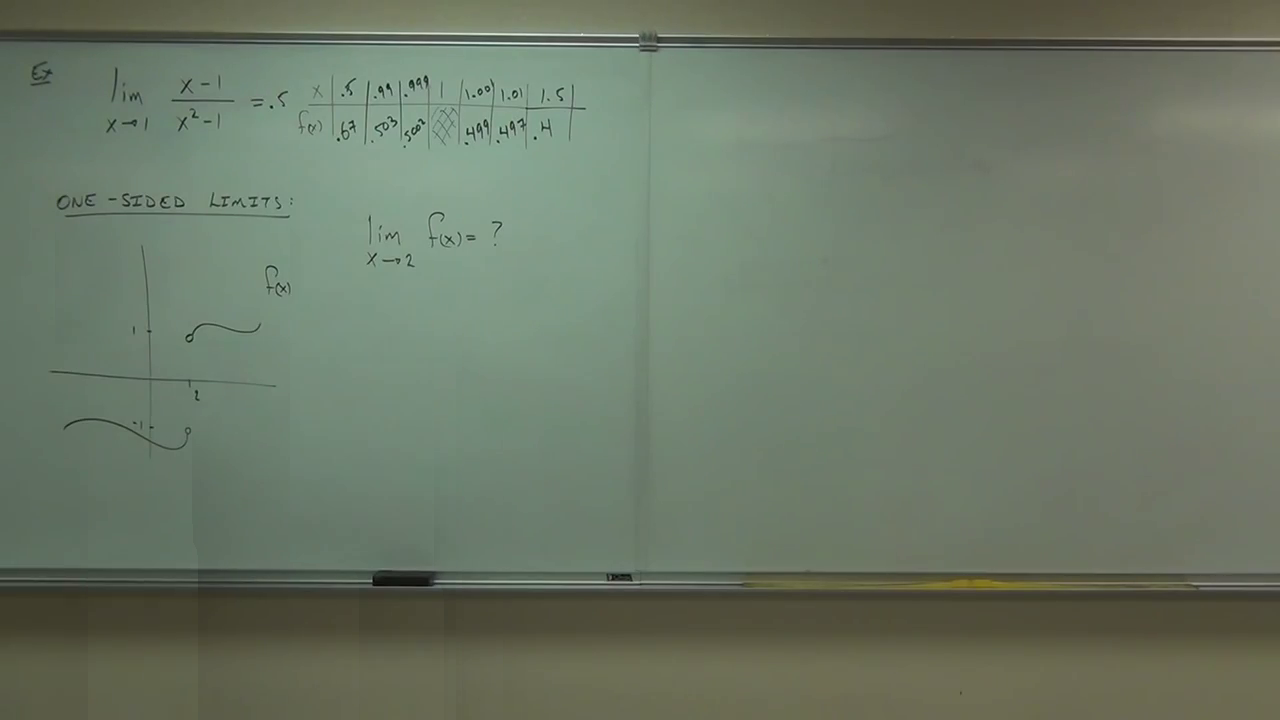 Ex lim x→1 x-1 / x²-1 = .5
x .5 .99 .999 1 1.001 1.01 1.5
f(x) .67 .503 .5002 .499 .497 .4
ONE-SIDED LIMITS:
lim x→2 f(x) = ?
f(x)
1
2
-1